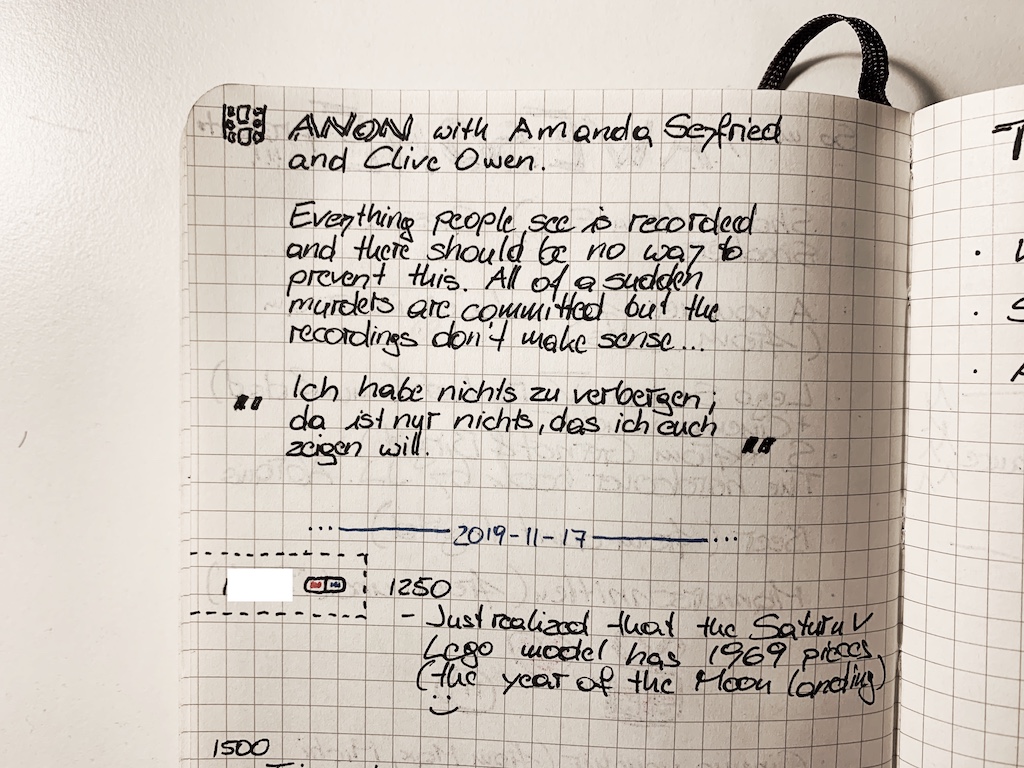 ANON with Amanda Seyfried
and Clive Owen.
Everything people see is recorded
and there should be no way to
prevent this. All of a sudden
murders are committed but the
recordings don't make sense...
" Ich habe nichts zu verbergen;
da ist nur nichts, das ich euch
zeigen will. "
... 2019-11-17 ...
1250
- Just realized that the Saturn V
Lego model has 1969 pieces
(the year of the Moon Landing)
:)
1500